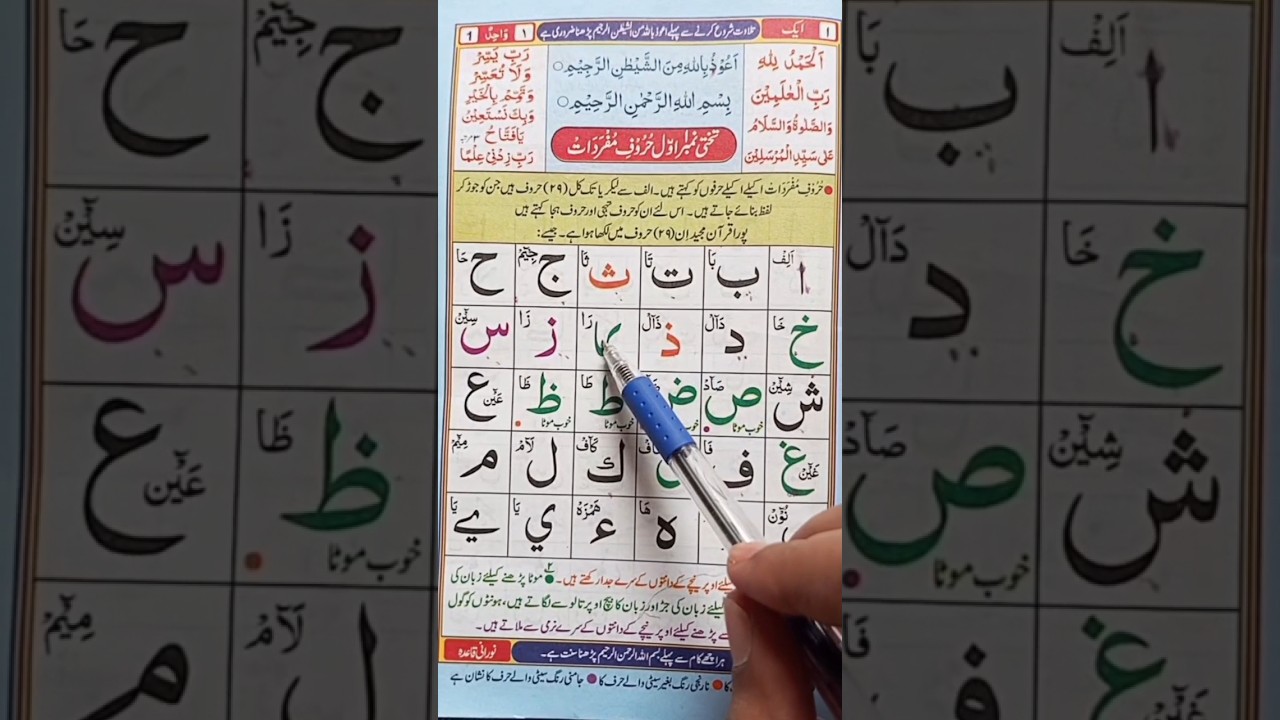 ١ ایک
تلاوت شروع کرنے سے پہلے اعوذ باللہ من الشیطٰن الرجیم پڑھنا ضروری ہے
١ وَاحِدٌ 1
اَلْحَمْدُ لِلّٰهِ
رَبِّ الْعٰلَمِيْنَ
وَالصَّلٰوةُ وَالسَّلَامُ
عَلٰى سَيِّدِ الْمُرْسَلِيْنَ
اَعُوْذُ بِاللّٰهِ مِنَ الشَّيْطٰنِ الرَّجِيْمِ○
بِسْمِ اللّٰهِ الرَّحْمٰنِ الرَّحِيْمِ○
تختی نمبر اوّل حُرُوْفِ مُفْرَدَاتْ
رَبِّ يَسِّرْ
وَلَا تُعَسِّرْ
وَتَمِّمْ بِالْخَيْرِ
وَبِكَ نَسْتَعِيْنُ
يَا فَتَّاحُ ٣ مرتبہ
رَبِّ زِدْنِيْ عِلْمًا
● حُرُوْفِ مُفْرَدَاتْ اکیلے اکیلے حرفوں کو کہتے ہیں۔ الف سے لیکر یا تک کل (٢٩) حروف ہیں جن کو جوڑ کر
لفظ بنائے جاتے ہیں۔ اس لئے ان کو حروف تہجی اور حروف ہجا کہتے ہیں
پورا قرآن مجید اِن (٢٩) حروف میں لکھا ہوا ہے۔ جیسے:
ا اَلِفْ ب بَا ت تَا ث ثَا ج جِيْٓمْ ح حَا
خ خَا د دَآلْ ذ ذَآلْ رَا ز زَا س سِيْٓنْ
ش شِيْٓنْ ص صَآدْ خوب موٹا ض خوب موٹا ط طَا خوب موٹا ظ ظَا خوب موٹا ع عَيْٓنْ
غ غَيْٓنْ ف فَا ك كَآفْ ل لَآمْ م مِيْٓمْ
نُوْٓنْ ه هَا ء هَمْزَهْ ي يَا ے يَا
لئے اوپر نیچے کے دانتوں کے سرے جدا رکھتے ہیں۔ ● موٹا پڑھنے کیلئے زبان کی
کیلئے زبان کی جڑ اور زبان کا بیچ اوپر تالو سے لگاتے ہیں، ہونٹوں کو گول
سے پڑھنے کیلئے اوپر نیچے کے دانتوں کے سرے نرمی سے ملاتے ہیں۔
ہر اچھے کام سے پہلے بسم اللہ الرحمن الرحیم پڑھنا سنت ہے۔
نورانی قاعدہ
● نارنجی رنگ بغیر سیٹی والے حرف کا ● جامنی رنگ سیٹی والے حرف کا نشان ہے